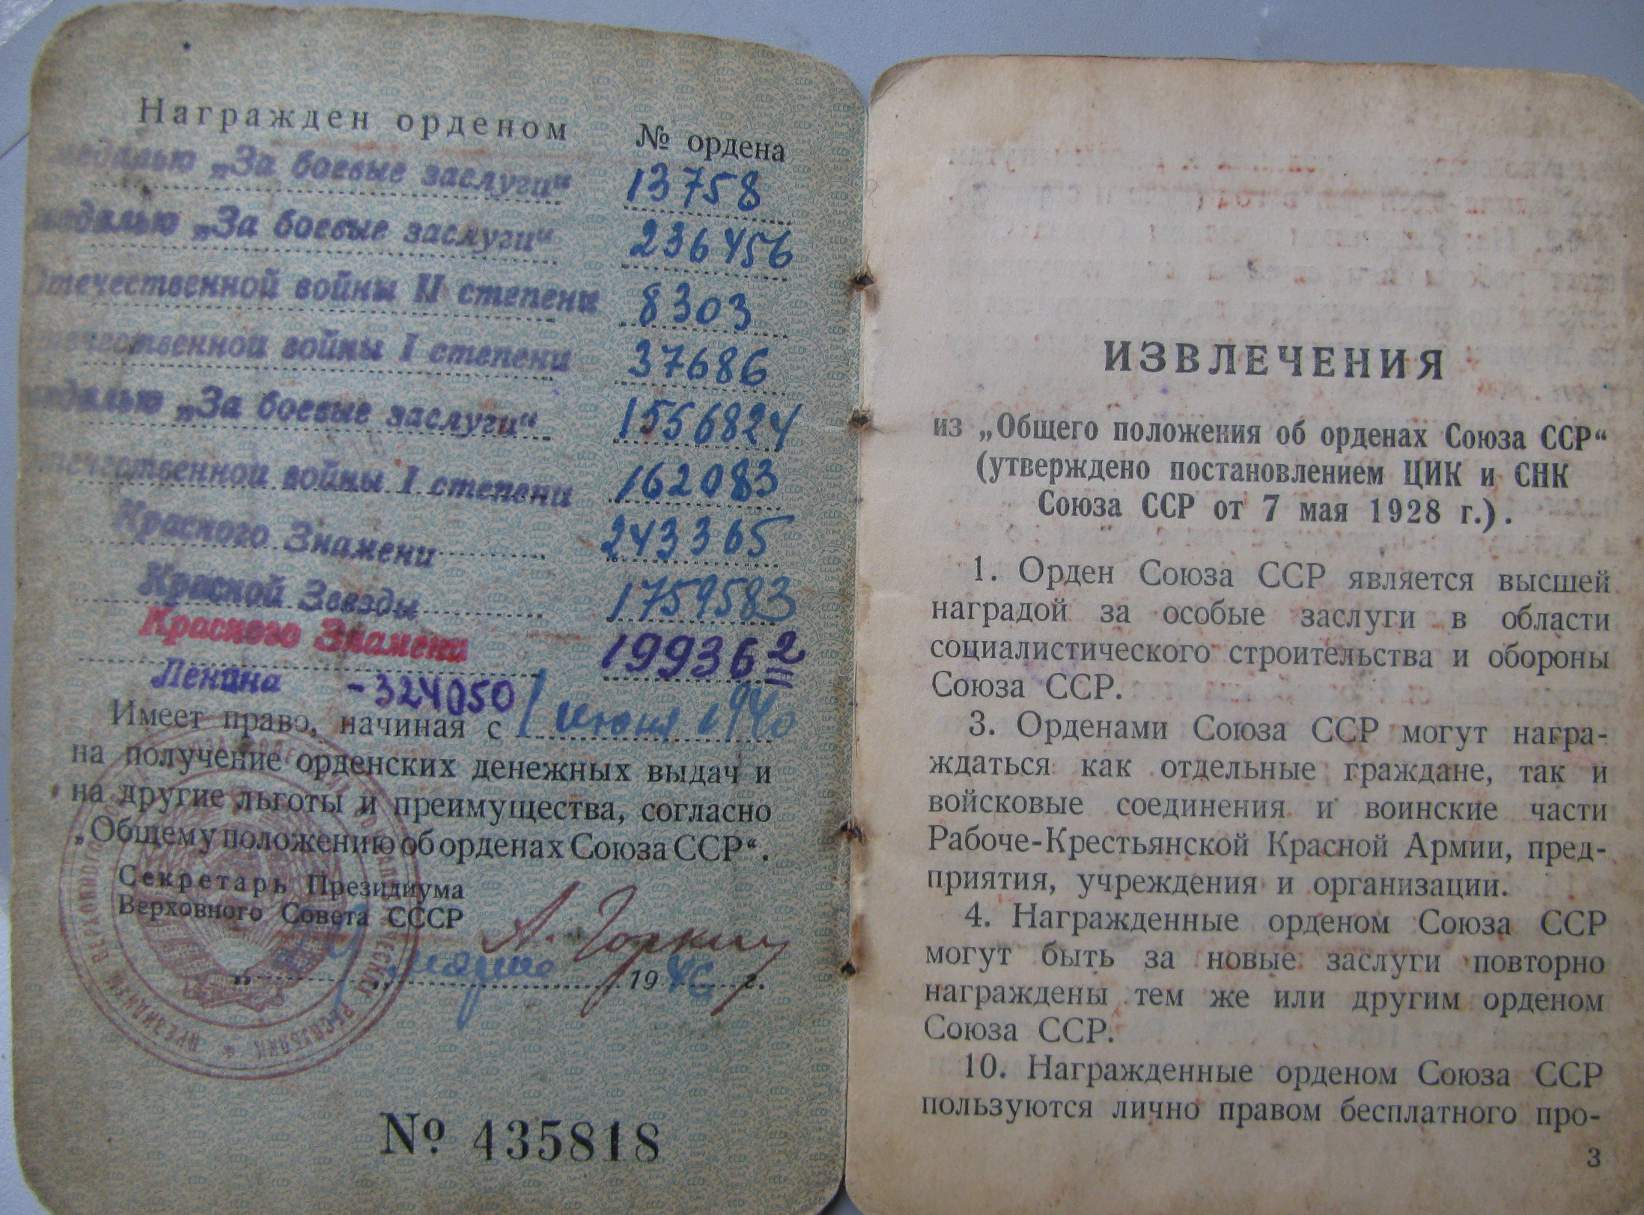 Награжден орденом № ордена
медалью „За боевые заслуги“ 13758
медалью „За боевые заслуги“ 236456
Отечественной войны II степени 8303
Отечественной войны I степени 37686
медалью „За боевые заслуги“ 1556824
Отечественной войны I степени 162083
Красного Знамени 243365
Красной Звезды 1759583
Красного Знамени 199362
Ленина - 324050
Имеет право, начиная с 1 июня 1940
на получение орденских денежных выдач и
на другие льготы и преимущества, согласно
„Общему положению об орденах Союза ССР“.
Секретарь Президиума
Верховного Совета СССР
А. Горкин
марта 1946 г.
№ 435818
ИЗВЛЕЧЕНИЯ
из „Общего положения об орденах Союза ССР“
(утверждено постановлением ЦИК и СНК
Союза ССР от 7 мая 1928 г.).
1. Орден Союза ССР является высшей
наградой за особые заслуги в области
социалистического строительства и обороны
Союза ССР.
3. Орденами Союза ССР могут награ-
ждаться как отдельные граждане, так и
войсковые соединения и воинские части
Рабоче-Крестьянской Красной Армии, пред-
приятия, учреждения и организации.
4. Награжденные орденом Союза ССР
могут быть за новые заслуги повторно
награждены тем же или другим орденом
Союза ССР.
10. Награжденные орденом Союза ССР
пользуются лично правом бесплатного про-
3